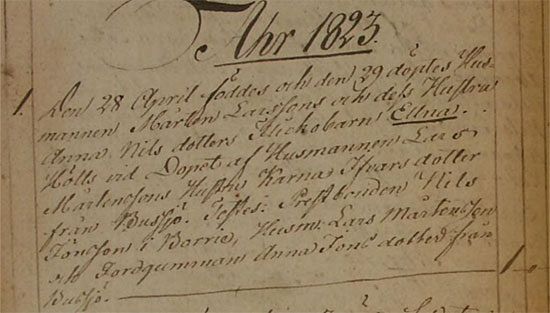 Åhr 1823.
1. Den 28 April föddes och den 29 döptes Hus-
mannen Mårten Larssons och dess Hustru
Anna Nils dotters Flickobarn Ellna.
Hölls vid Dopet af Husmannen Lars
Mårtensons Hustru Karna Ifvars dotter
från Bussjö. Testes: Prestbonden Nils
Jönsson i Borrie, Husm. Lars Mårtensson
och Jordgumman Anna Jöns dotter från
Bussjö.